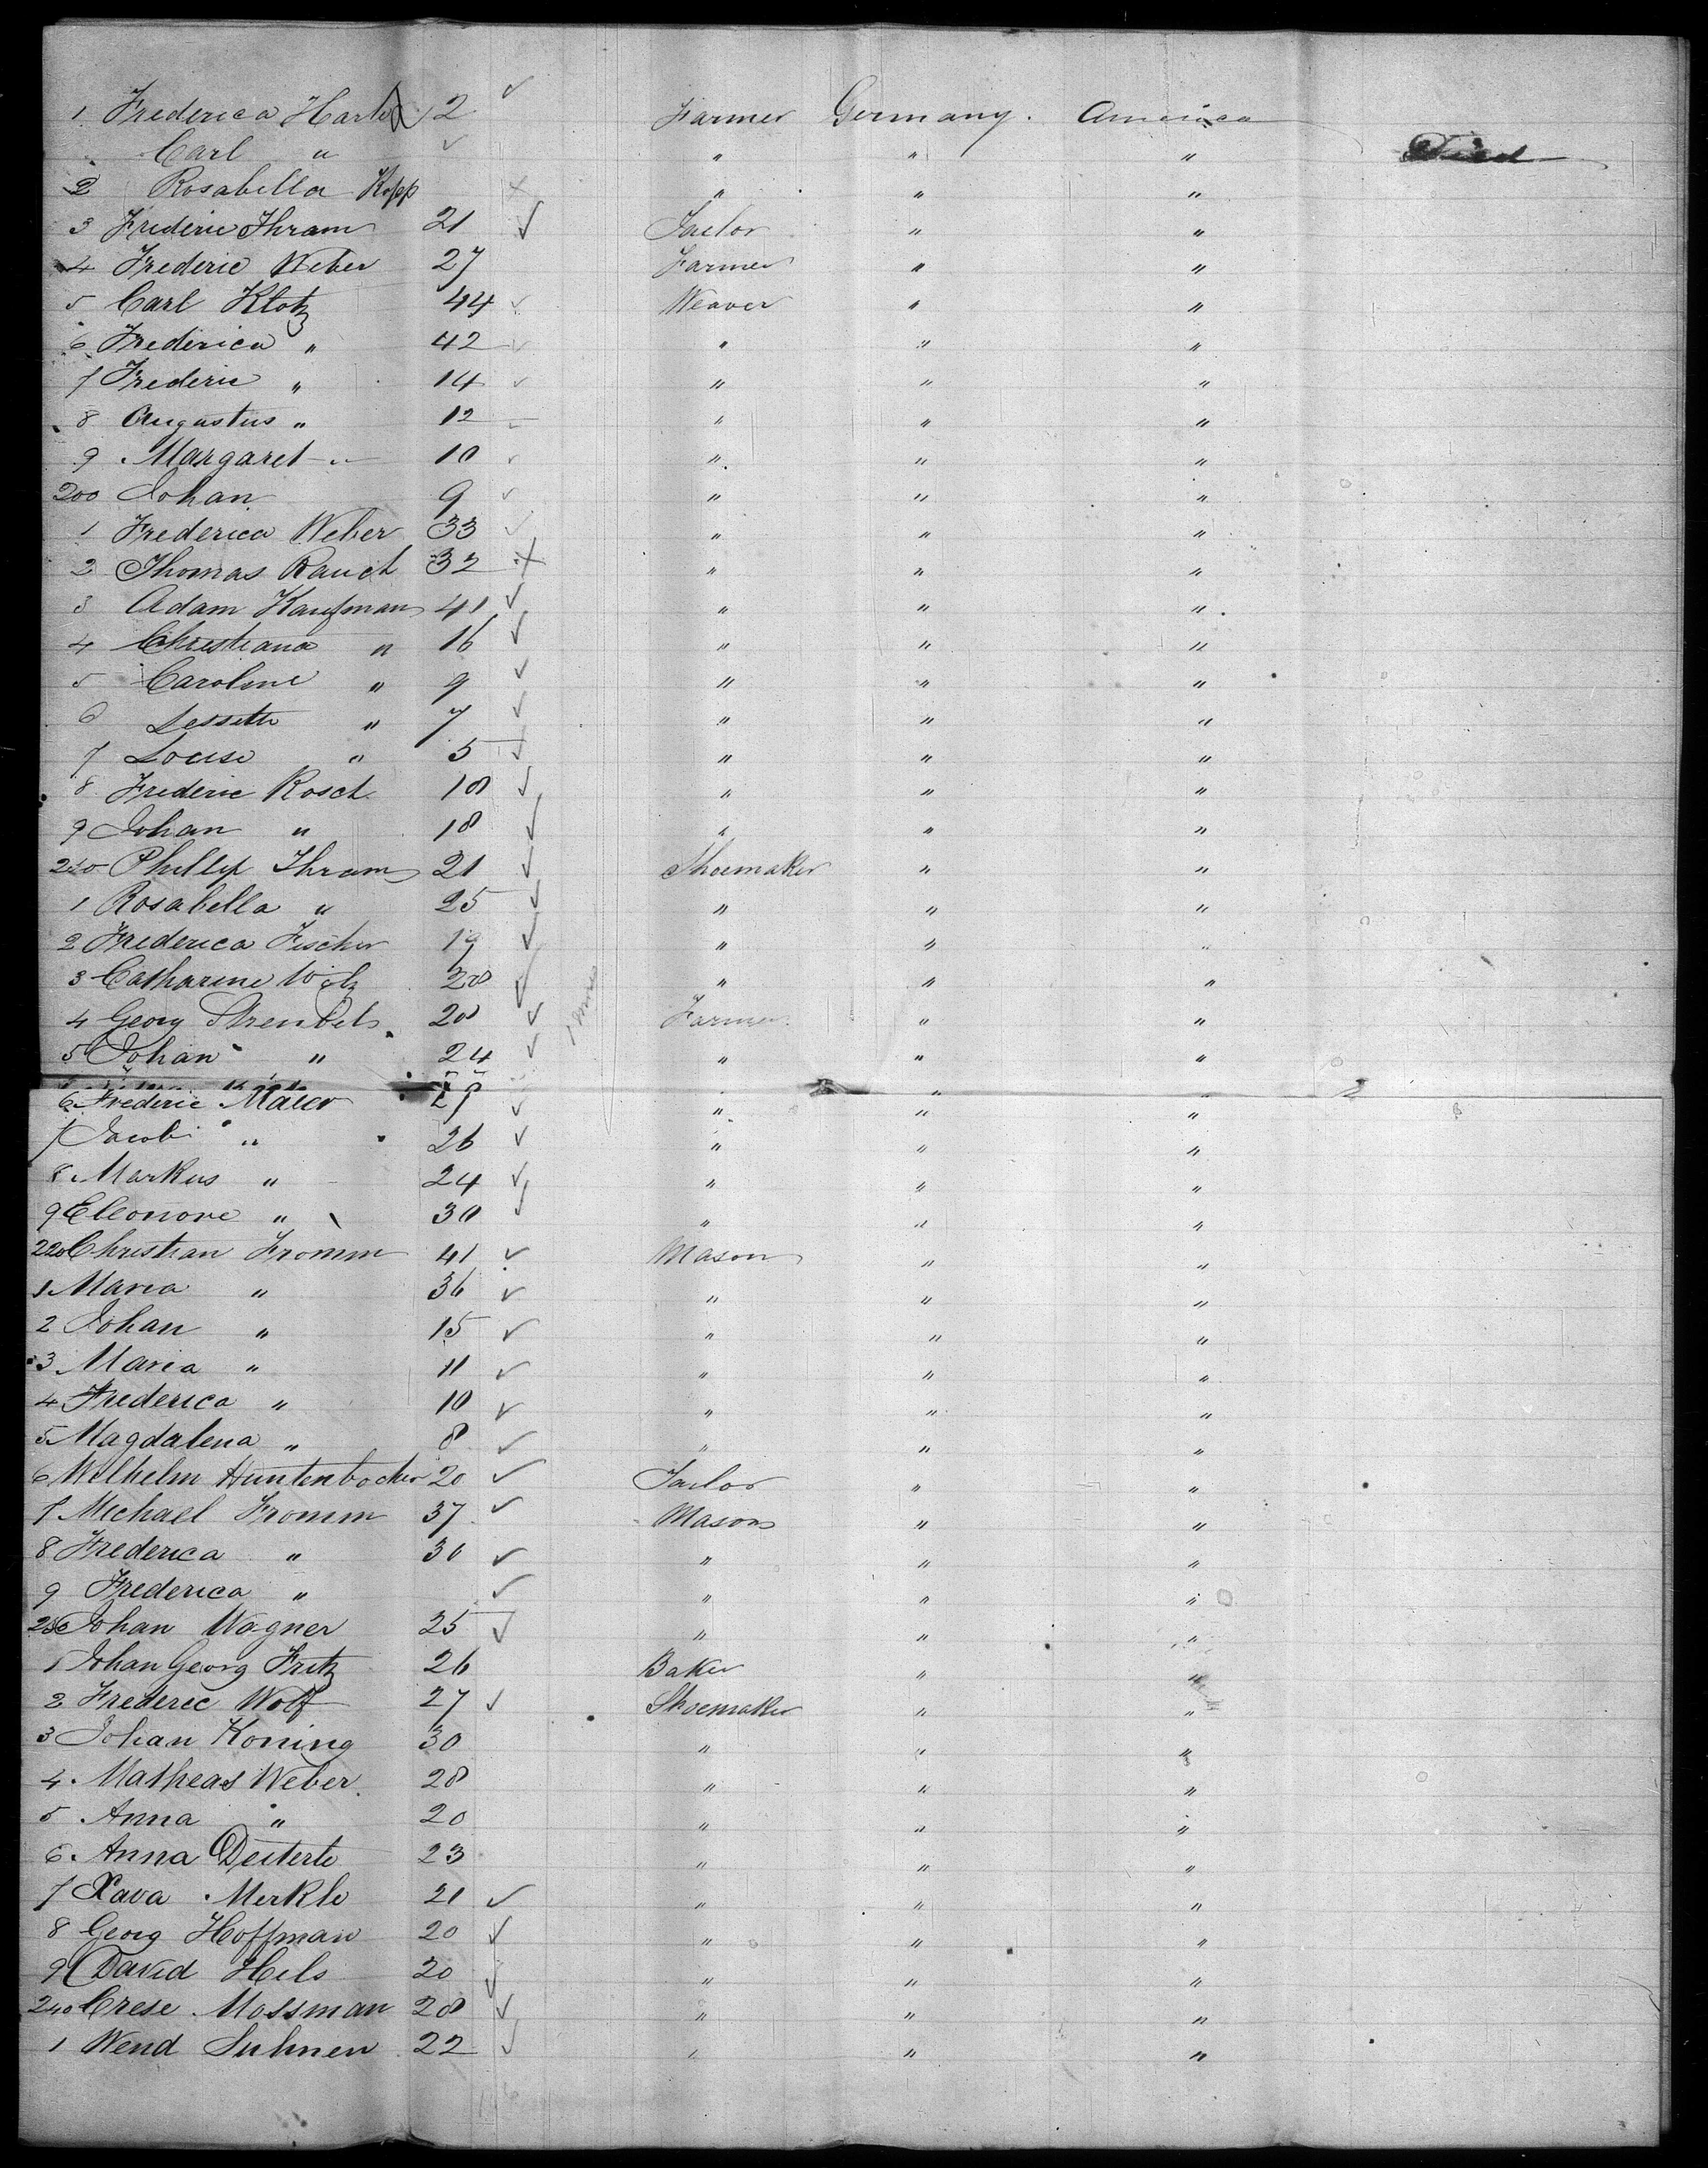 1 Frederica 2 Farmer Germany. America
Carl " " " " Died
2 Rosabella Kopp " " "
3 Frederic Ihram 21 Tailor " "
4 Frederic Weber 27 Farmer " "
5 Carl Klotz 44 Weaver " "
6 Frederica " 42 " " "
7 Frederic " 14 " " "
8 Augustus " 12 " " "
9 Margaret " 10 " " "
200 Johan 9 " " "
1 Frederica Weber 33 " " "
2 Thomas Rauch 32 " " "
3 Adam Kaufman 41 " " "
4 Christiana " 16 " " "
5 Caroline " 9 " " "
6 Lessette " 7 " " "
7 Louise " 5 " " "
8 Frederic Rosch 18 " " "
9 Johan " 18 " " "
210 Phillip Ihram 21 Shoemaker " "
1 Rosabella " 25 " " "
2 Frederica Fischer 19 " " "
3 Catharine 28 " " "
4 Georg 20 Farmer " "
5 Johan " 24 " " "
6 Frederic 29 " " "
7 Jacob " 26 " " "
8 Markus " 24 " " "
9 Eleonore " 30 " " "
220 Christian Fromm 41 Mason " "
1 Maria " 36 " " "
2 Johan " 15 " " "
3 Maria " 11 " " "
4 Frederica " 10 " " "
5 Magdalena " 8 " " "
6 Wilhelm Huntenbocker 20 Tailor " "
7 Michael Fromm 37 Mason " "
8 Frederica " 30 " " "
9 Frederica " " " "
230 Johan Wagner 25 " " "
1 Johan Georg Fritz 26 Baker " "
2 Frederic Wolf 27 Shoemaker " "
3 Johan Koning 30 " " "
4 Matheas Weber 28 " " "
5 Anna " 20 " " "
6 Anna Deiterle 23 " " "
7 Xava Merkle 21 " " "
8 Georg Hoffman 20 " " "
9 David Hels 20 " " "
240 Crese Mossman 28 " " "
1 Wend Suhnen 22 " " "